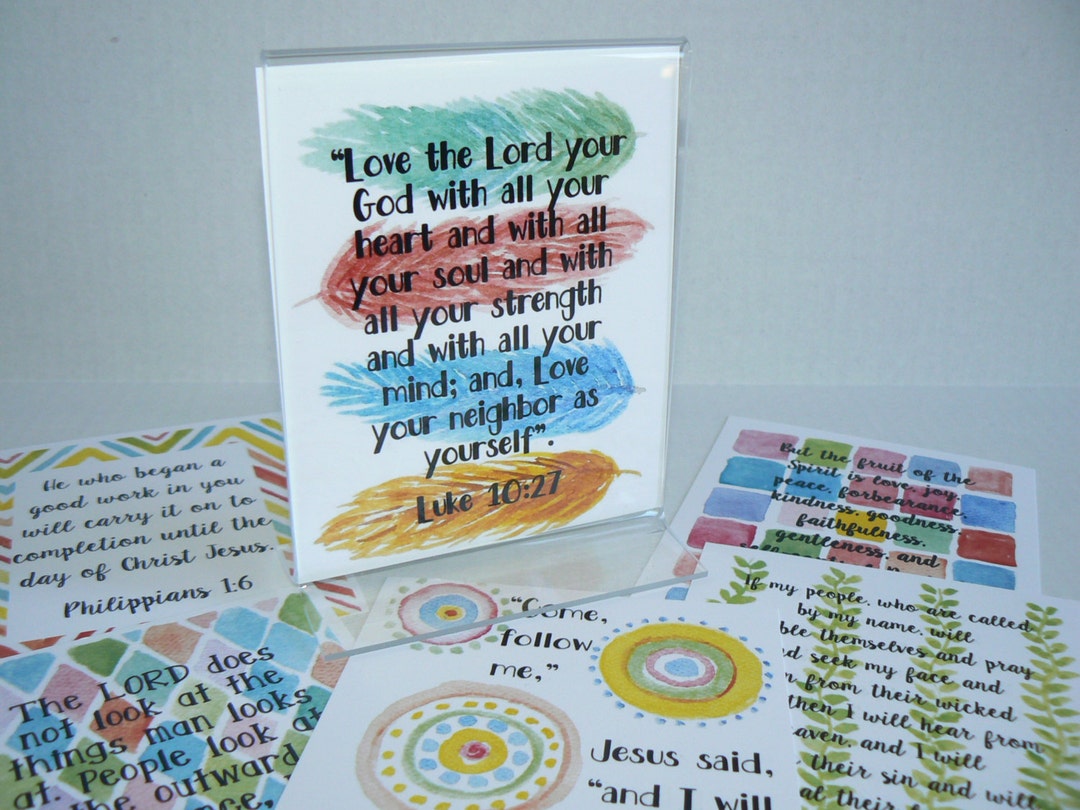 “Love the Lord your
God with all your
heart and with all
your soul and with
all your strength
and with all your
mind; and, Love
your neighbor as
yourself”.
Luke 10:27
He who began a
good work in you
will carry it on to
completion until the
day of Christ Jesus.
Philippians 1:6
But the fruit of the
Spirit is love, joy,
peace, forbearance,
kindness, goodness,
faithfulness,
gentleness, and
The LORD does
not look at the
things man looks
at. People look at
the outward
“Come,
follow
me,”
Jesus said,
“and I will
If my people, who are called
by my name, will
themselves and pray
seek my face and
from their wicked
then I will hear from
and I will
their sin and will
their